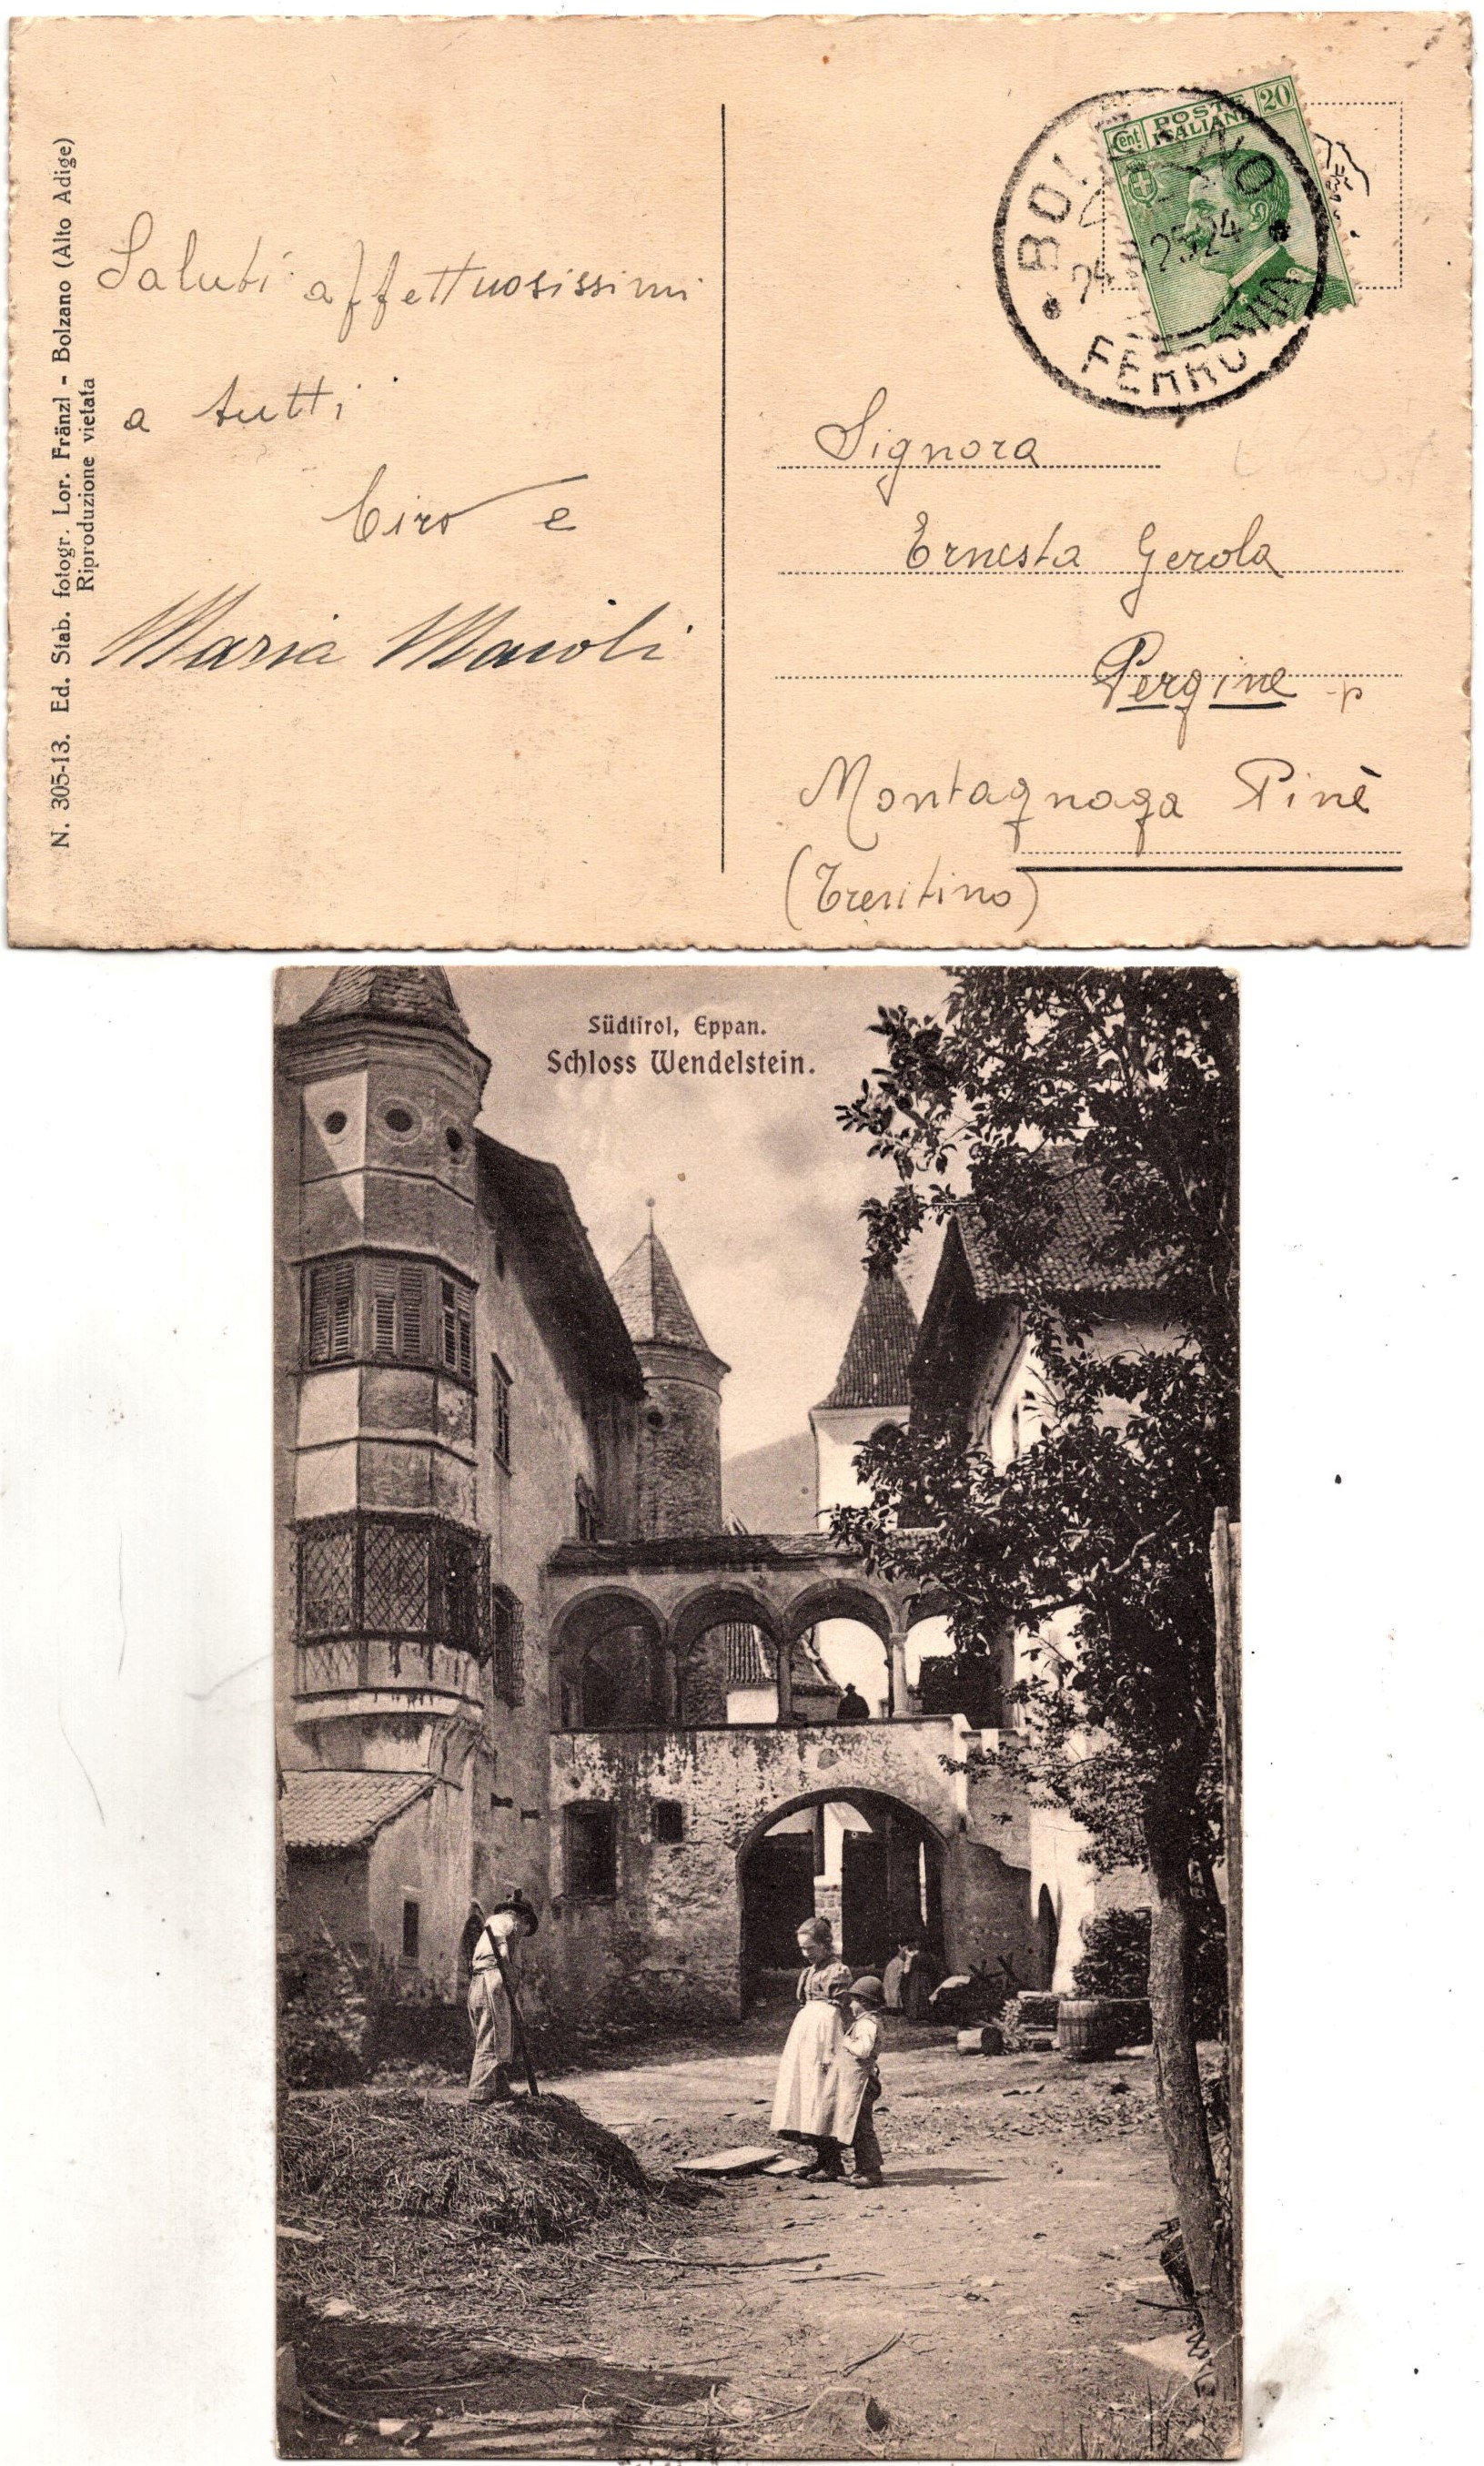 N. 305-13. Ed. Stab. fotogr. Lor. Fränzl - Bolzano (Alto Adige)
Riproduzione vietata
Saluti affettuosissimi
a tutti
Ciro e
Maria Maioli
Cent
POSTE
ITALIANE
20
FERROVIA
Signora
Ernesta Gerola
Pergine - p
Montagnaga Pinè
(Trentino)
Südtirol, Eppan.
Schloss Wendelstein.